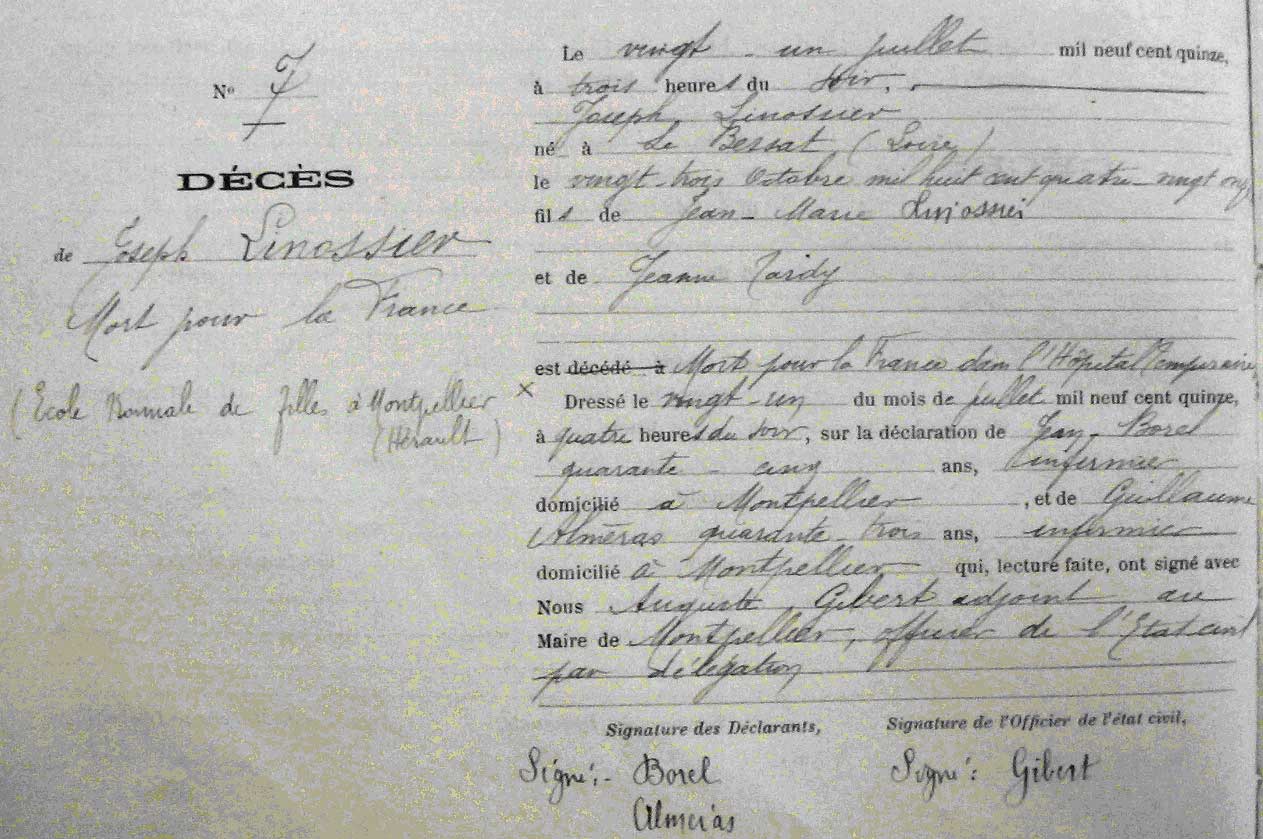 N° 7
DÉCÈS
de Joseph Linossier
Mort pour la France
(Ecole Normale de filles à Montpellier
(Hérault)
Le vingt-un juillet mil neuf cent quinze,
à trois heures du soir,
Joseph Linossier
né à Le Bessat (Loire)
le vingt-trois Octobre mil huit cent quatre-vingt onze
fils de Jean-Marie Linossier
et de Jeanne Tardy
est décédé à Mort pour la France dans l'Hôpital Temporaire
× Dressé le vingt-un du mois de juillet mil neuf cent quinze,
à quatre heures du soir, sur la déclaration de Jean Borel
quarante-cinq ans, infirmier
domicilié à Montpellier, et de Guillaume
Alméras quarante-trois ans, infirmier
domicilié à Montpellier qui, lecture faite, ont signé avec
Nous Auguste Gibert adjoint au
Maire de Montpellier, officier de l'Etat civil
par délégation
Signature des Déclarants, Signature de l'Officier de l'état civil,
Signé:- Borel Signé: Gibert
Alméras